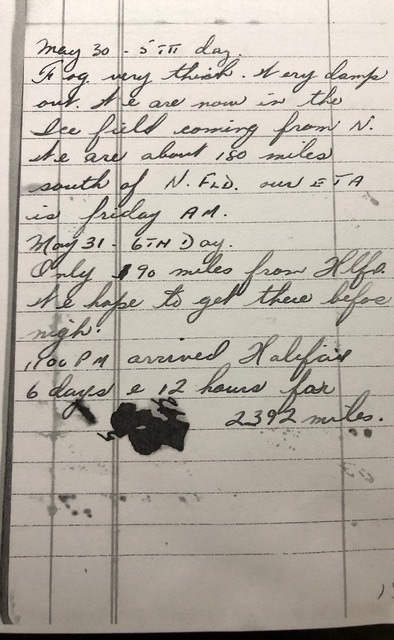 May 30 - 5TH day.
Fog very thick. Very damp
out. We are now in the
Ice field coming from N.
We are about 180 miles
south of N. FLD. our ETA
is friday AM.
May 31 - 6TH Day.
Only 190 miles from Hlfx.
We hope to get there before
nigh.
1100 PM arrived Halifax
6 days & 12 hours for
2392 miles.